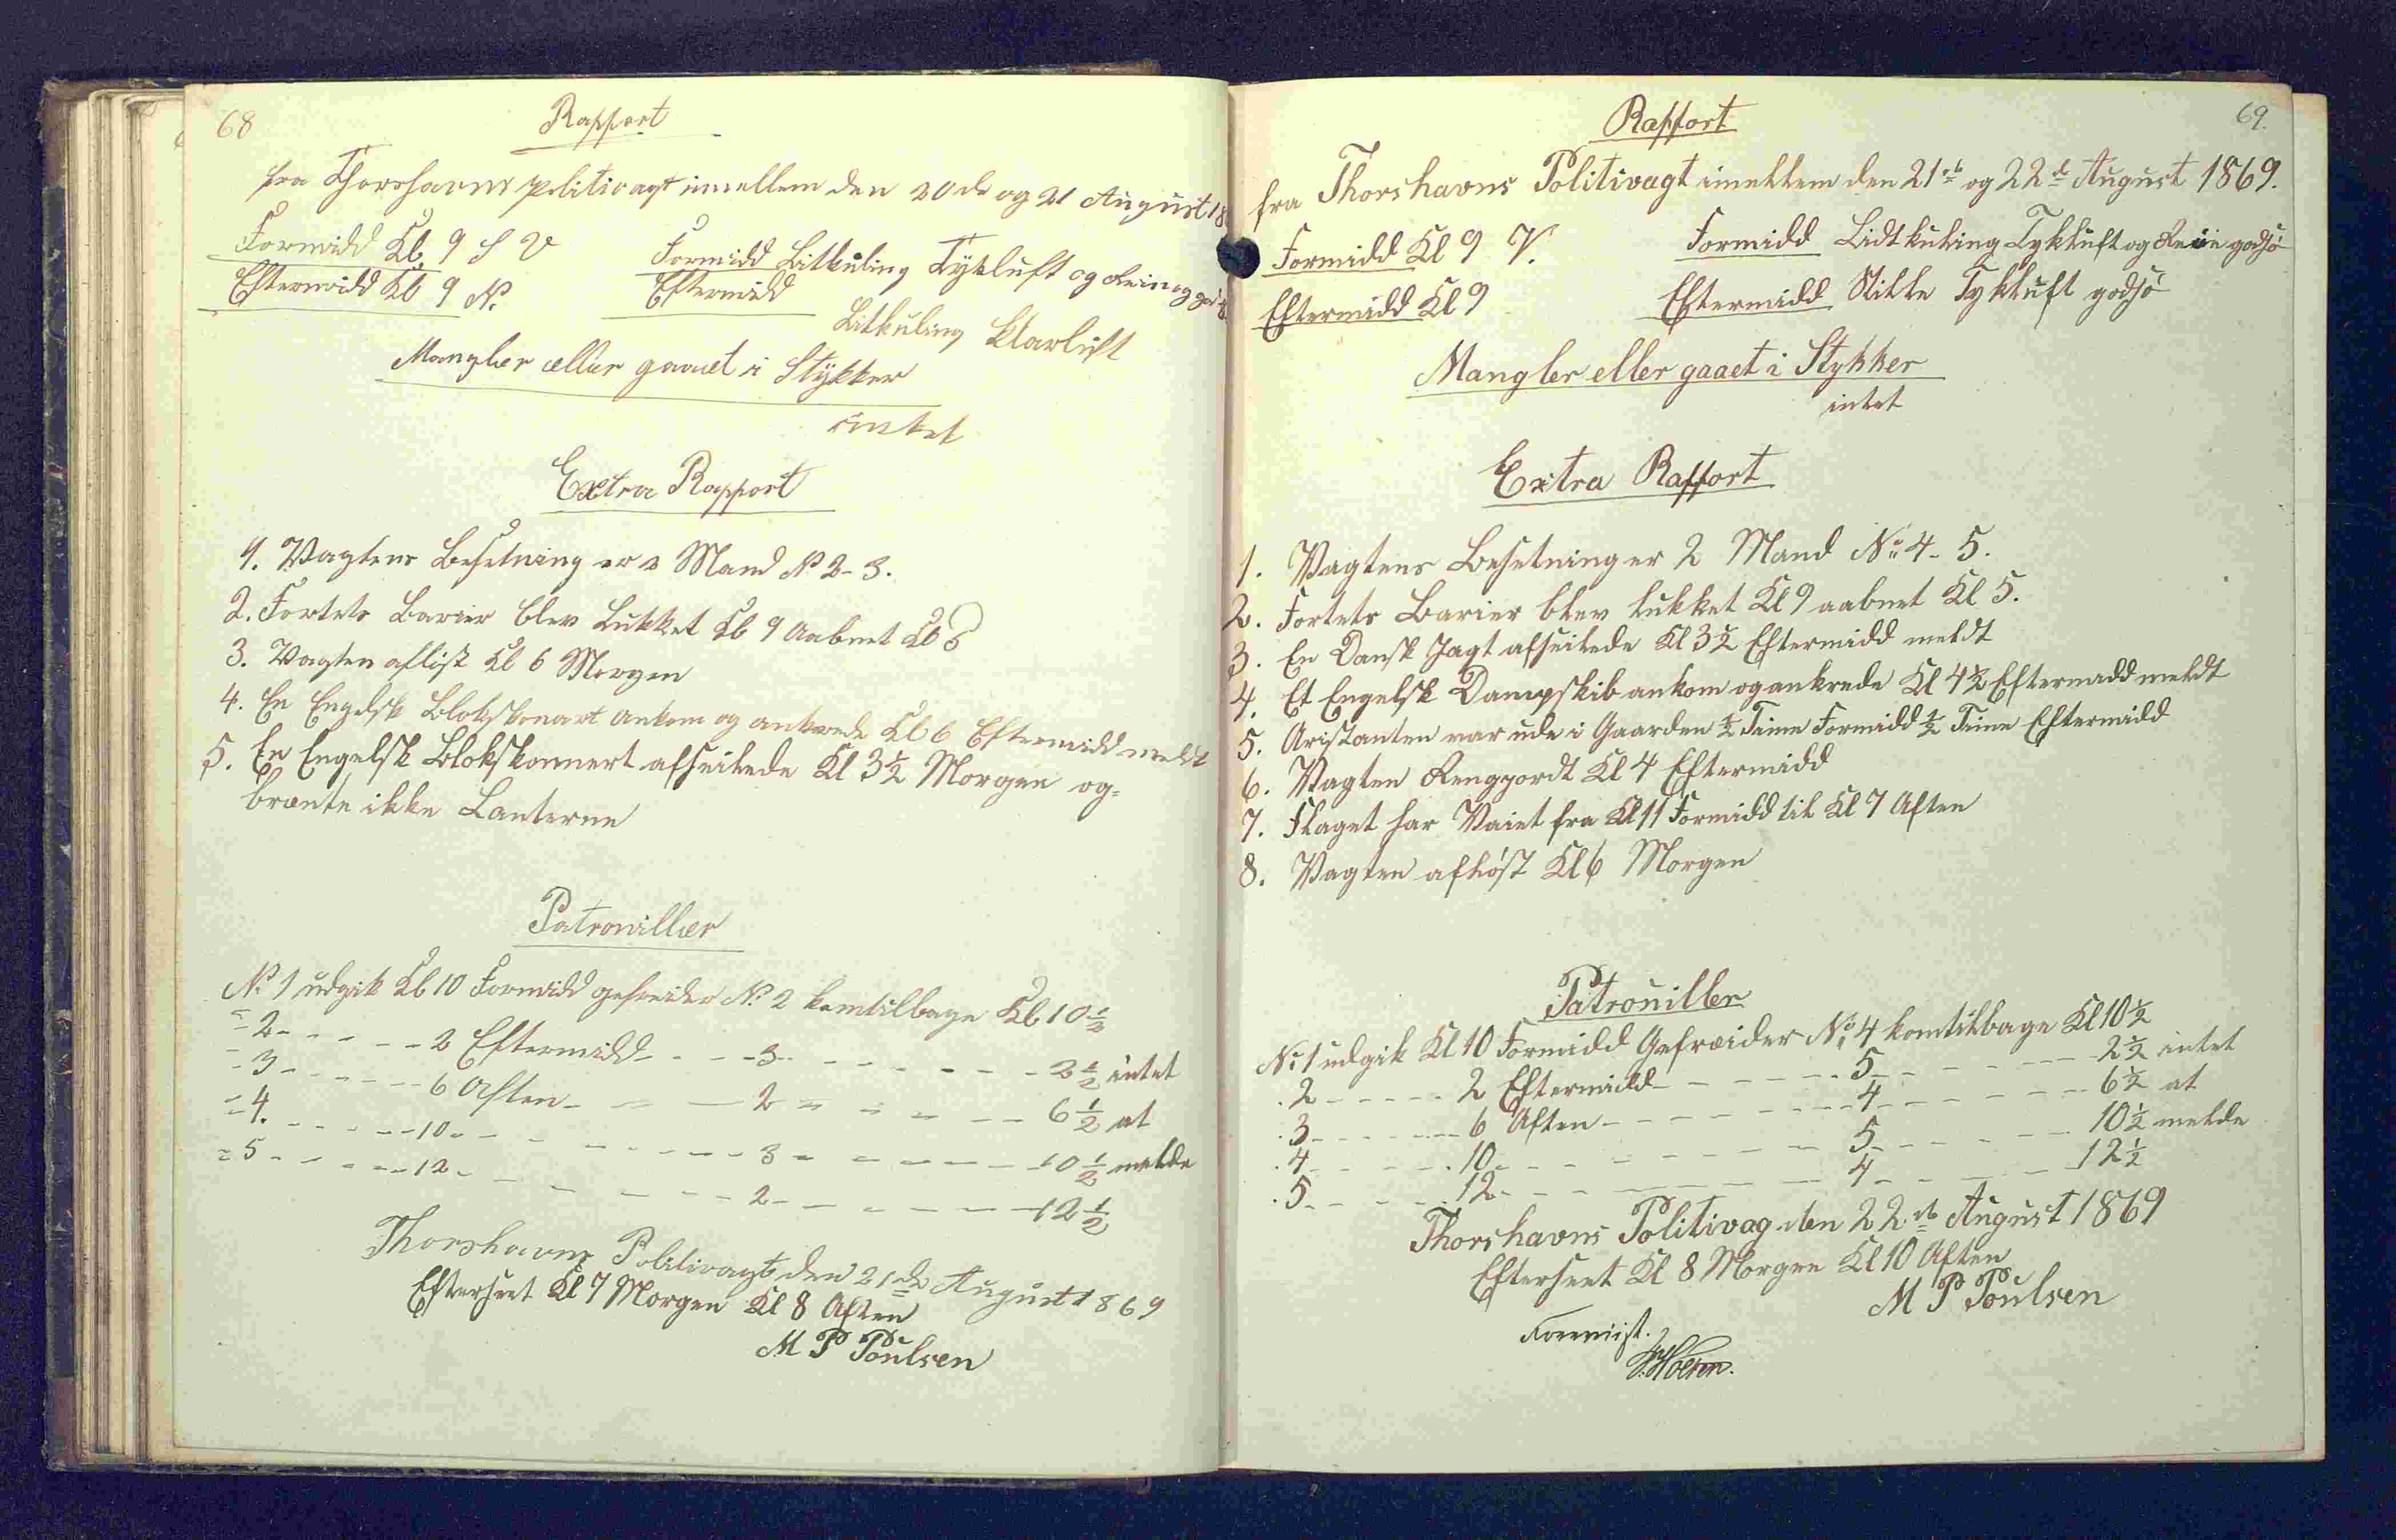 68
Rapport
fra Thorshavns Politivagt imellem den 20de og 21 August 18
Formidd Kl. 9 S V
Formidd Litkuling Tykluft og Rein og god
Eftermidd Kl 9 N.
Eftermidd
Litkuling Klarluft
Mangler eller gaaet i Stykker
intet
Extra Rapport
1. Vagtens Besetning er 2 Mand No 2-3.
2. Fortets Barier blev Lukket Kl 9 Aabnet Kl 5
3. Vagten afløst Kl 6 Morgen
4. En Engelsk Blokskonart Ankom og ankrede Kl 6 Eftermidd meldt
5. En Engelsk Blokskonnert afseilede Kl 3½ Morgen og=
brænte ikke Lanterne
Patrouiller
No 1 udgik Kl 10 Formidd gefreider No 2 komtilbage Kl 10½
=2 - - - - - 2 Eftermidd - - - 3 - - - - - - 2½ intet
- 3 - - - - - 6 Aften - - - 2 = = = - - 6½ at
=4. - - - - - 10 - - - - - - - 3 - - - - - 10½ melde
=5 - - - - - 12 - - - - - - 2 - - - - - 12½
Thorshavns Politivagt den 21de August 1869
Efterseet Kl 7 Morgen Kl 8 Aften
M P Poulsen
69.
Rapport
fra Thorshavns Politivagt imellem den 21de og 22de August 1869.
Formidd Kl 9 V.
Formidd Lidtkuling Tykluft og Rein godsø
Eftermidd Kl 9
Eftermidd Stille Tykluft godsø
Mangler eller gaaet i Stykker
intet
Extra Rapport
1. Vagtens Besetning er 2 Mand No 4-5.
2. Fortets Barier blev lukket Kl 9 aabnet Kl 5.
3. En Dansk Jagt afseilede Kl 3½ Eftermidd meldt
4. Et Engelsk Dampskib ankom og ankrede Kl 4½ Eftermadd meldt
5. Aristanten var ude i Gaarden ½ Time Formidd ½ Time Eftermidd
6. Vagten Rengjordt Kl 4 Eftermidd
7. Flaget har Vaiet fra Kl 11 Formidd til Kl 7 Aften
8. Vagten afløst Kl 6 Morgen
Patrouiller
No 1 udgik Kl 10 Formidd Gefreider No 4 komtilbage Kl 10½
. 2 - - - - - 2 Eftermidd - - - - - - 5 - - - - - 2½ intet
. 3 - - - - - 6 Aften - - - - - - - 4 - - - - - 6½ at
. 4 - - - - - 10 - - - - - - - 5 - - - - - 10½ melde
. 5 - - - - - 12 - - - - - - - 4 - - - - - 12½
Thorshavns Politivag den 22de August 1869
Efterseet Kl 8 Morgen Kl 10 Aften
M P Poulsen
Forevist.